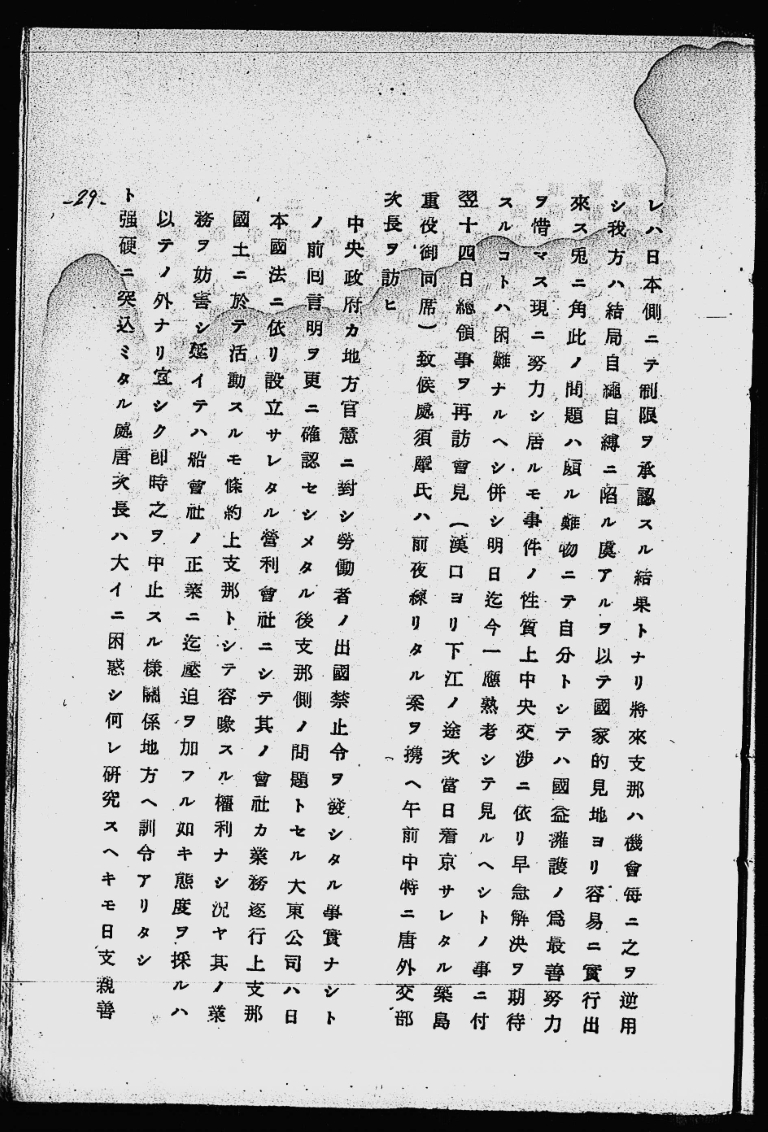 レハ日本側ニテ制限ヲ承認スル結果トナリ將來支那ハ機會每ニ之ヲ逆用
シ我方ハ結局自繩自縛ニ陷ル虞アルヲ以テ國家的見地ヨリ容易ニ實行出
來ス兎ニ角此ノ問題ハ頗ル難物ニテ自分トシテハ國益擁護ノ爲最善努力
ヲ惜マス現ニ努力シ居ルモ事件ノ性質上中央交涉ニ依リ早急解決ヲ期待
スルコトハ困難ナルヘシ併シ明日迄今一應熟考シテ見ルヘシトノ事ニ付
翌十四日總領事ヲ再訪會見（漢口ヨリ下江ノ途次當日着京サレタル築島
重役御同席）致候處須磨氏ハ前夜練リタル案ヲ携ヘ午前中特ニ唐外交部
次長ヲ訪ヒ
中央政府カ地方官憲ニ對シ勞働者ノ出國禁止令ヲ發シタル事實ナシト
ノ前囘言明ヲ更ニ確認セシメタル後支那側ノ問題トセル大東公司ハ日
本國法ニ依リ設立サレタル營利會社ニシテ其ノ會社カ業務遂行上支那
國土ニ於テ活動スルモ條約上支那トシテ容喙スル權利ナシ況ヤ其ノ業
務ヲ妨害シ延イテハ船會社ノ正業ニ迄壓迫ヲ加フル如キ態度ヲ採ルハ
以テノ外ナリ宜シク卽時之ヲ中止スル樣關係地方ヘ訓令アリタシ
ト强硬ニ突込ミタル處唐次長ハ大イニ困惑シ何レ硏究スヘキモ日支親善
-29-